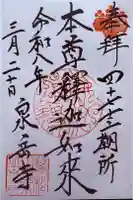 奉拝 四十七士廟所
本尊釋迦如来
令和八年
三月二十日
泉岳寺